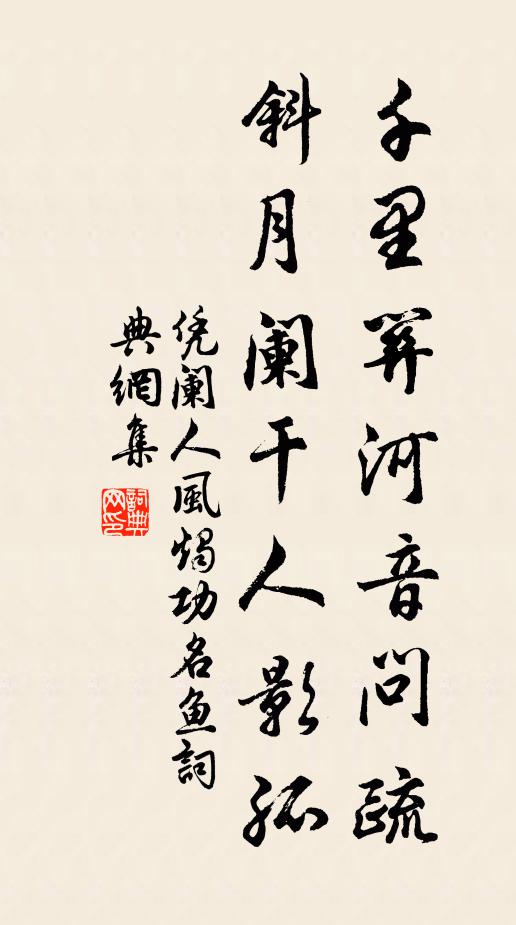 千里关河音問疏
斜月闌干人影孤
凭闌人風燭功名魚詞
典網集
詞典
网印